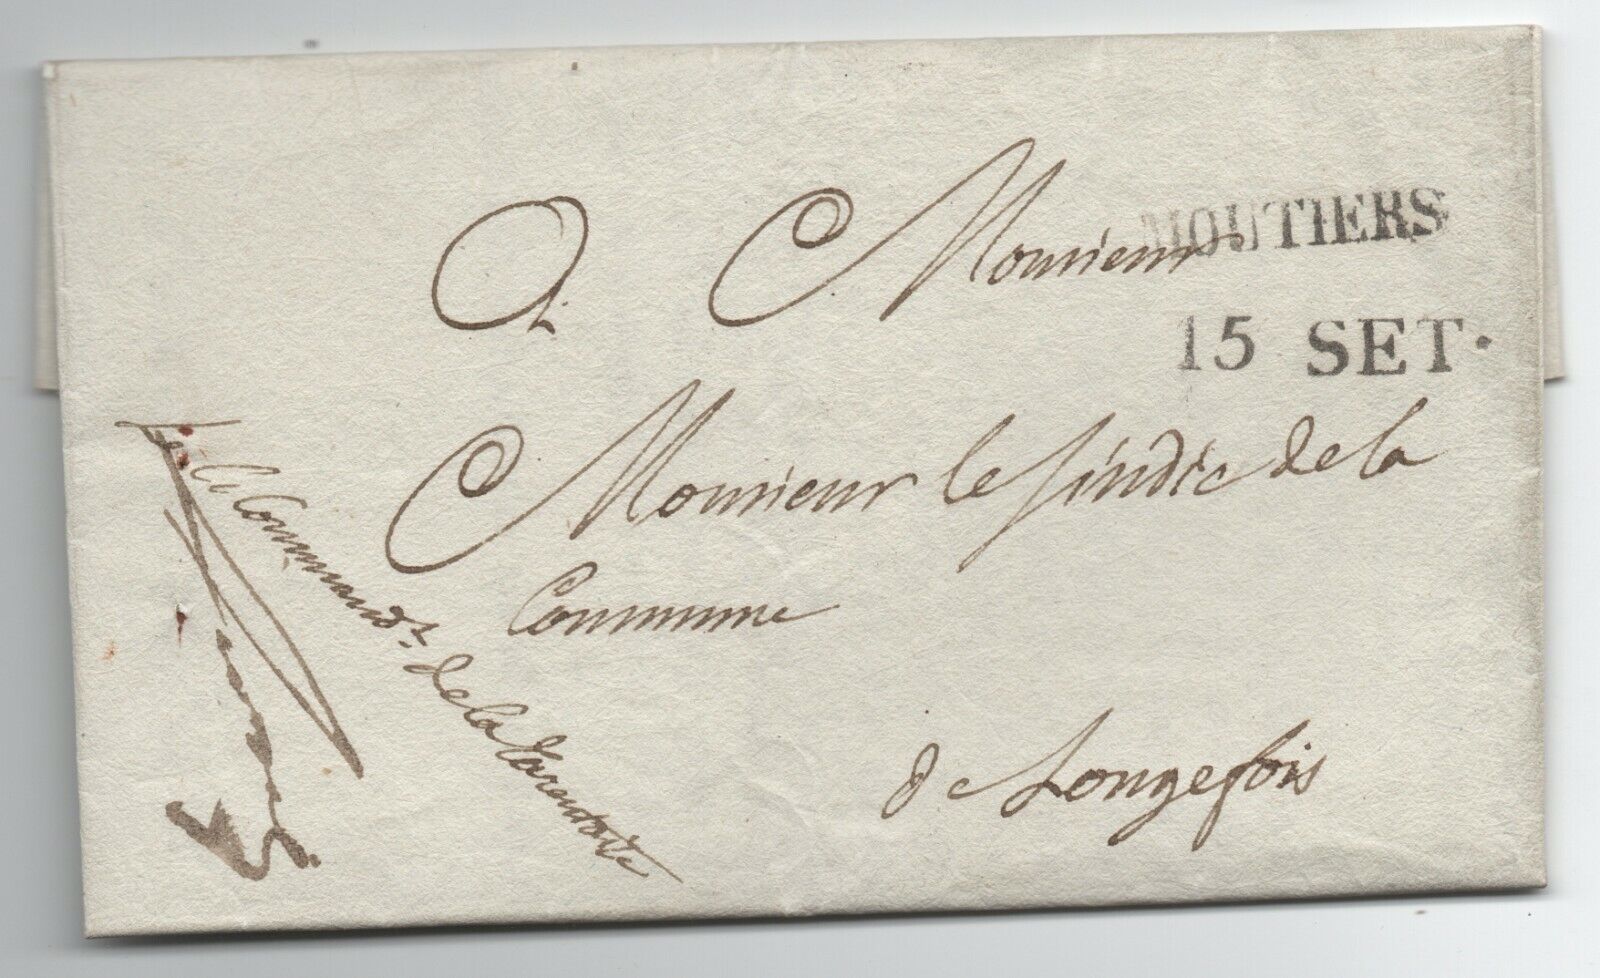 MOUTIERS
15 SET.
A Monsieur
Monsieur le sindic de la
Commune
de Longefois
Le Command.t de la Tarentaise